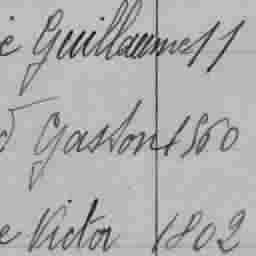 e Guillaume 11
d Gaston 1860
e Victor 1802